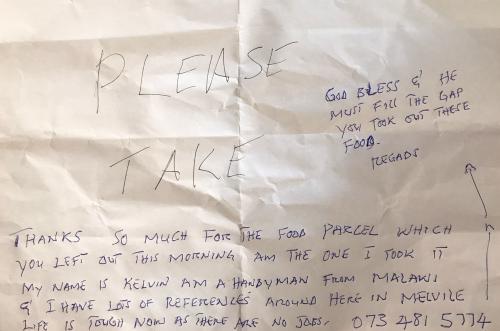 PLEASE
TAKE
GOD BLESS & HE
MUST FILL THE GAP
YOU TOOK OUT THESE
FOOD.
REGADS
THANKS SO MUCH FOR THE FOOD PARCEL WHICH
YOU LEFT OUT THIS MORNING AM THE ONE I TOOK IT
MY NAME IS KELVIN AM A HANDYMAN FROM MALAWI
& I HAVE LOTS OF REFERENCES AROUND HERE IN MELVILE
LIFE IS TOUGH NOW AS THERE ARE NO JOBS. 073 481 5774